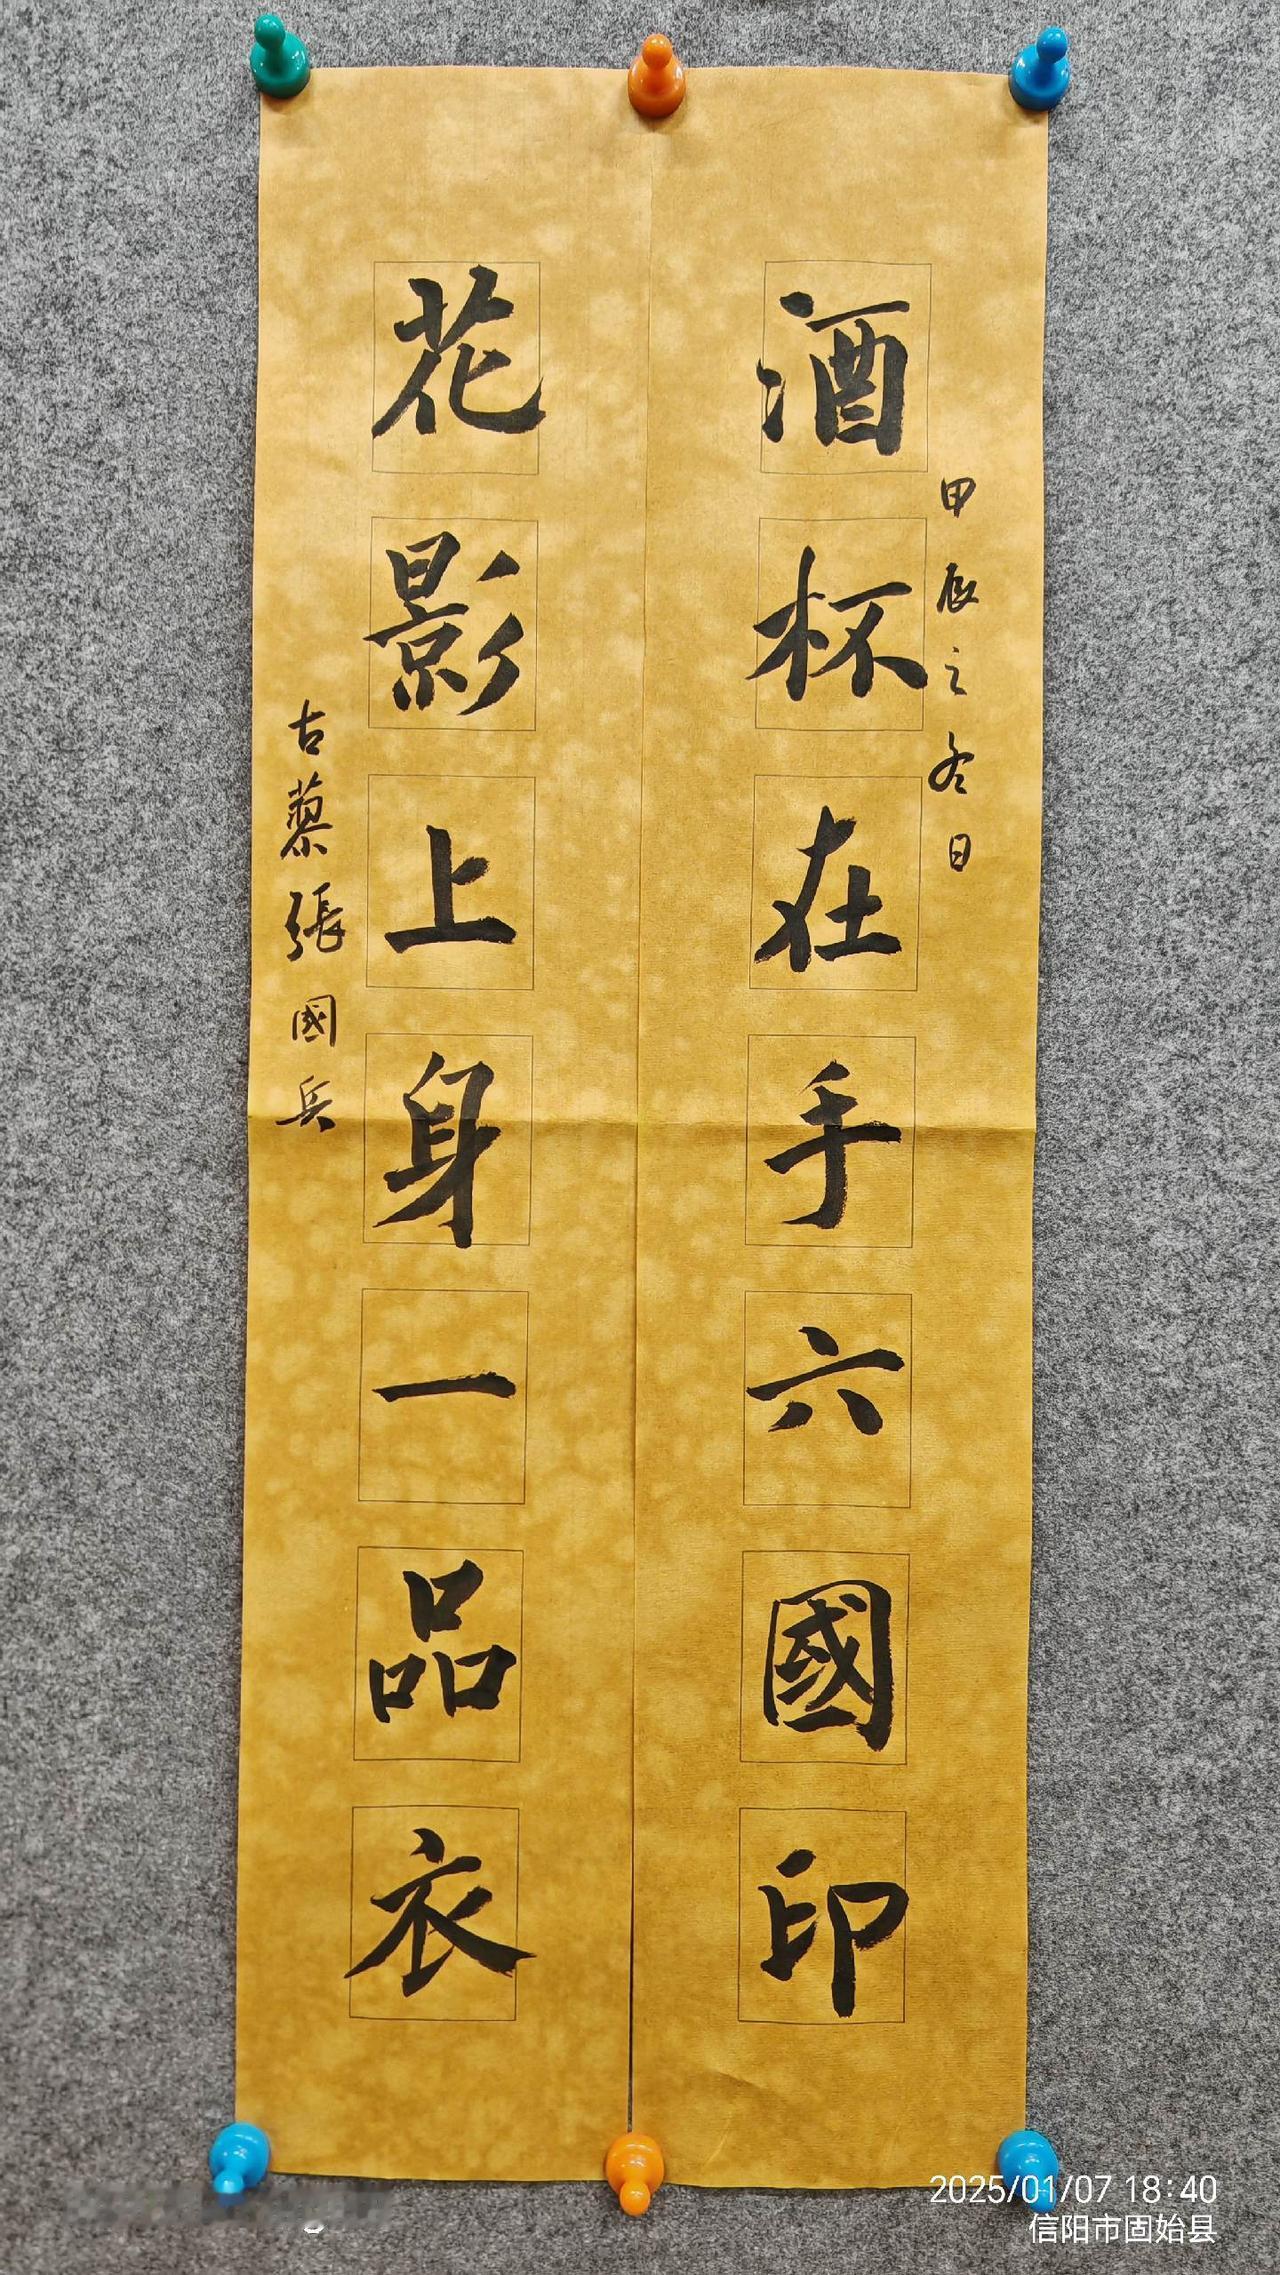 酒杯在手六國印
甲辰之冬日
花影上身一品衣
古蓼張國兵
2025/01/07 18:40
信阳市固始县